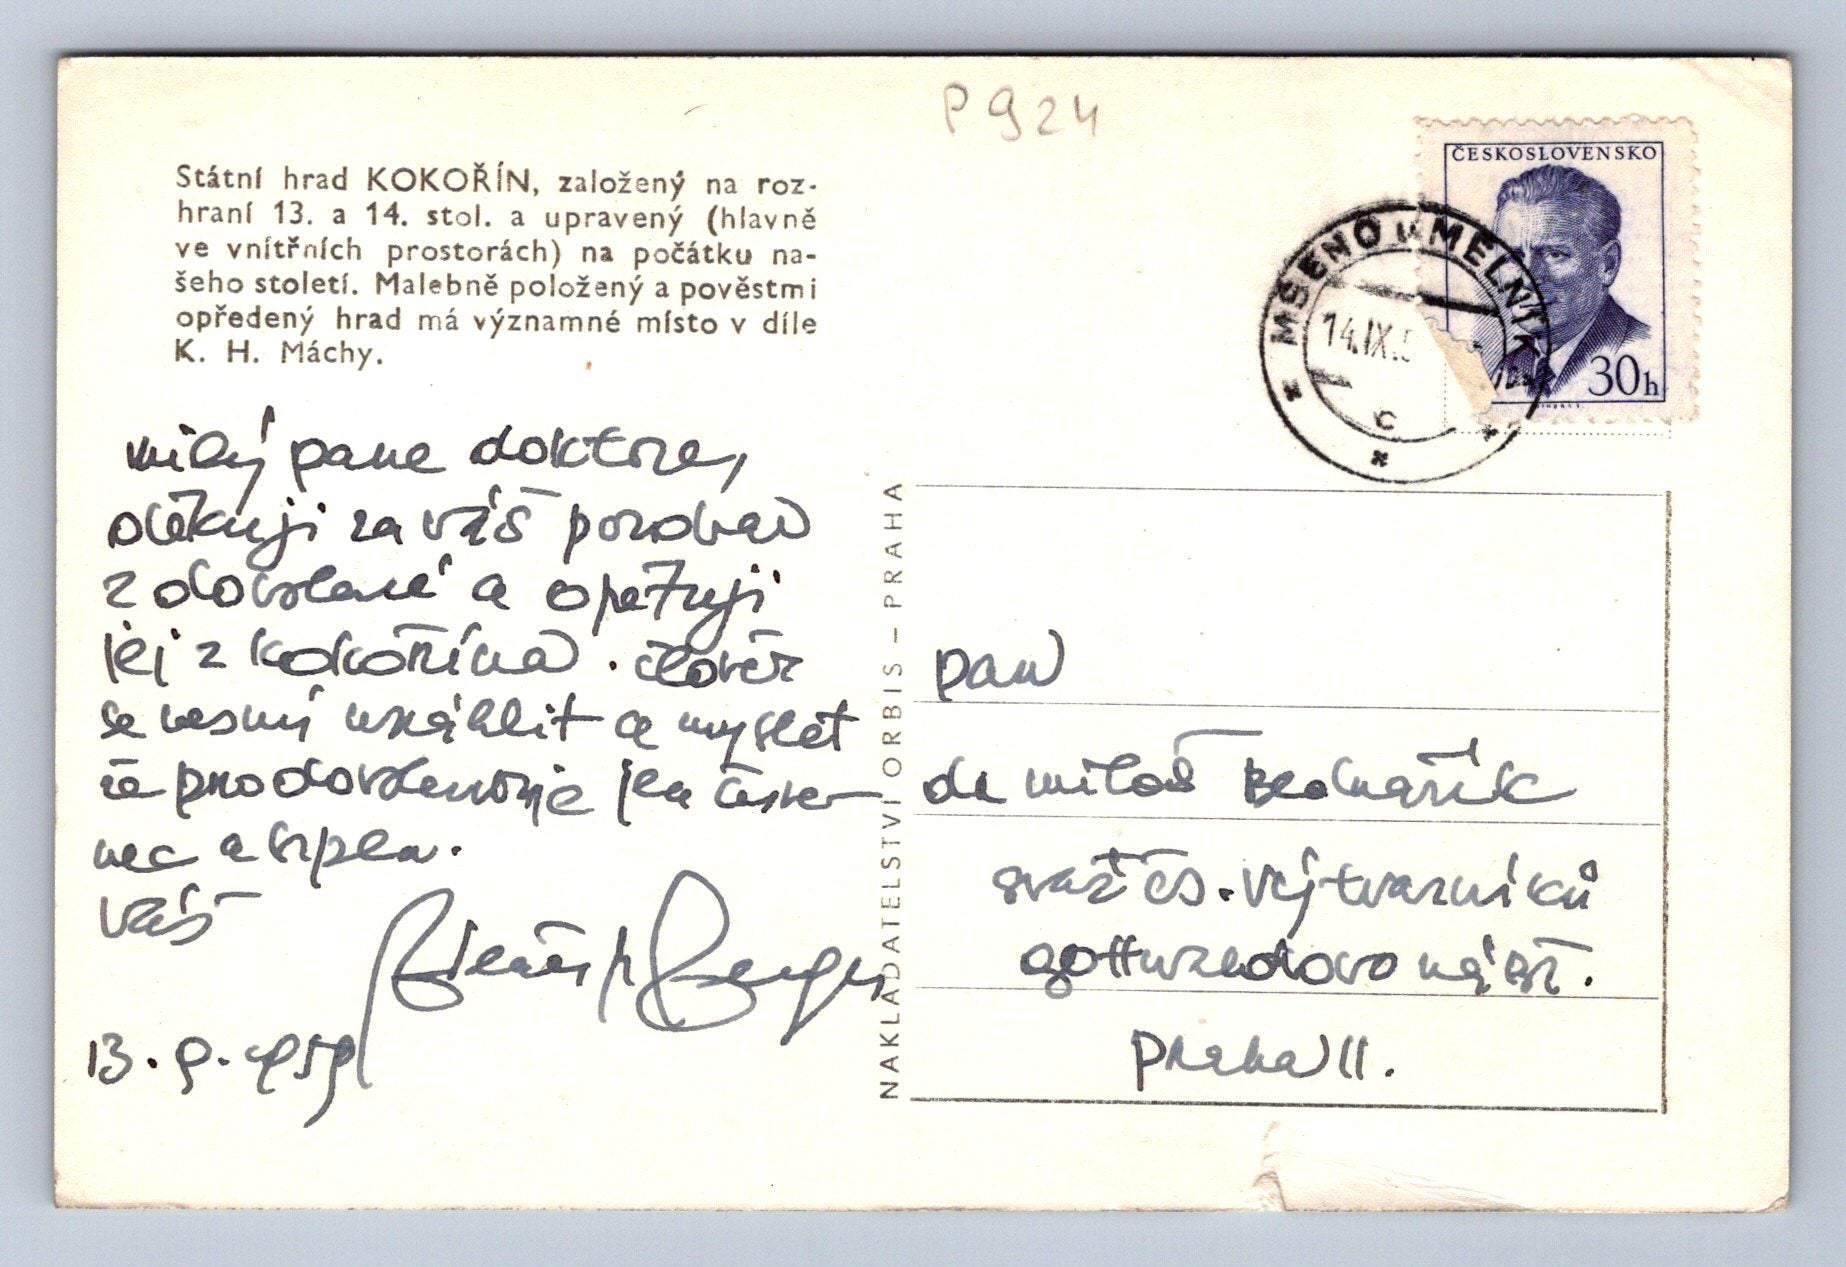 P 924
Státní hrad KOKOŘÍN, založený na roz-
hraní 13. a 14. stol. a upravený (hlavně
ve vnitřních prostorách) na počátku na-
šeho století. Malebně položený a pověstmi
opředený hrad má významné místo v díle
K. H. Máchy.
ČESKOSLOVENSKO
30h
MŠENO u MĚLNÍKA
14.IX.5
c
milý pane doktore,
děkuji za váš pozdrav
z dovolené a opětuji
jej z kokořína. člověk
se nesmí ukáhlit a myslet
že pro dovolenou je jen červe-
nec a srpen.
váš
13. 9. 1959
NAKLADATELSTVÍ ORBIS – PRAHA
pan
dr miloš Bednařík
svaz čs. výtvarníků
gottwaldovo nábř.
praha II.